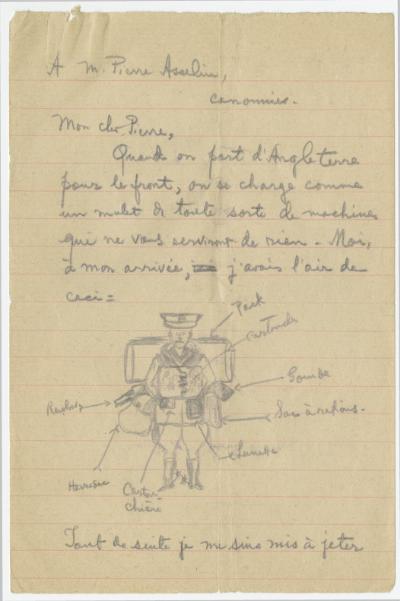 A M. Pierre Asselin,
canonnier.
Mon cher Pierre,
Quand on part d'Angleterre
pour le front, on se charge comme
un mulet de toute sorte de machines
qui ne vous serviront de rien – Moi,
à mon arrivée, j'avais l'air de
ceci =
Pack
cartouches
Gourde
Revolver
Sac à rations.
Lunette
Haversac
Cartou-
chière
Tout de suite je me suis mis à jeter